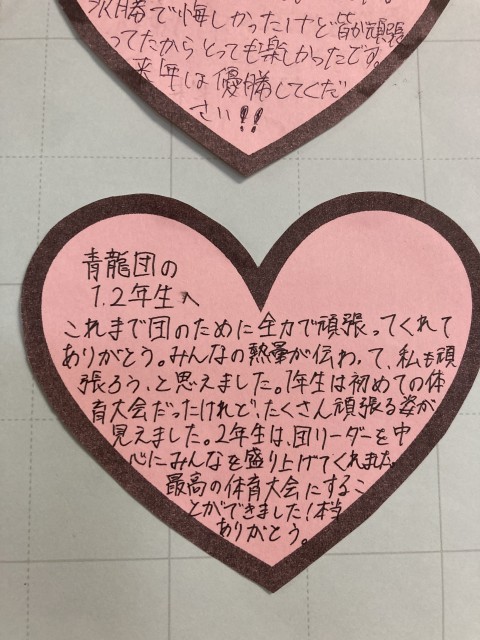 準勝で悔しかったけど皆が頑張
ってたからとっても楽しかったです。
来年は優勝してくだ
さい!!
青龍団の
1.2年生へ
これまで団のために全力で頑張ってくれて
ありがとう。みんなの熱量が伝わって、私も頑
張ろう、と思えました。1年生は初めての体
育大会だったけれど、たくさん頑張る姿が
見えました。2年生は、団リーダーを中
心にみんなを盛り上げてくれました。
最高の体育大会にするこ
とができました!本当
ありがとう。